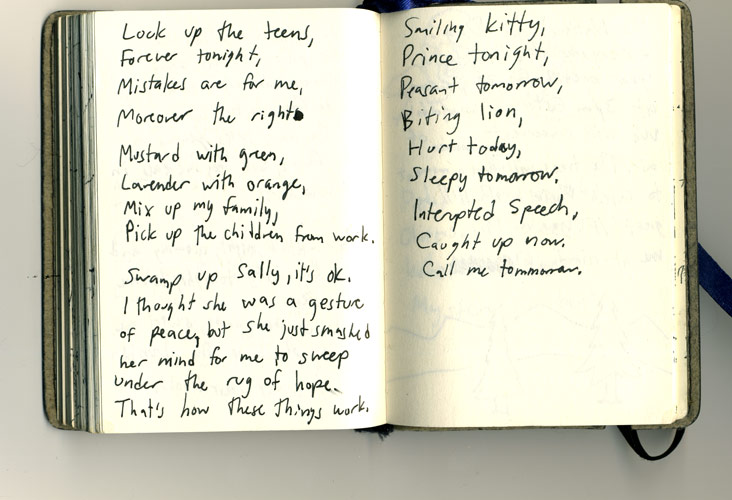 Lock up the teens,
Forever tonight,
Mistakes are for me,
Moreover the right
Mustard with green,
Lavender with orange,
Mix up my family,
Pick up the children from work.
Swamp up Sally, it's ok.
I thought she was a gesture
of peace, but she just smashed
her mind for me to sweep
under the rug of hope.
That's how these things work.
Smiling kitty,
Prince tonight,
Peasant tomorrow,
Biting lion,
Hurt today,
Sleepy tomorrow.
Interupted Speech,
Caught up now.
Call me tommorow.